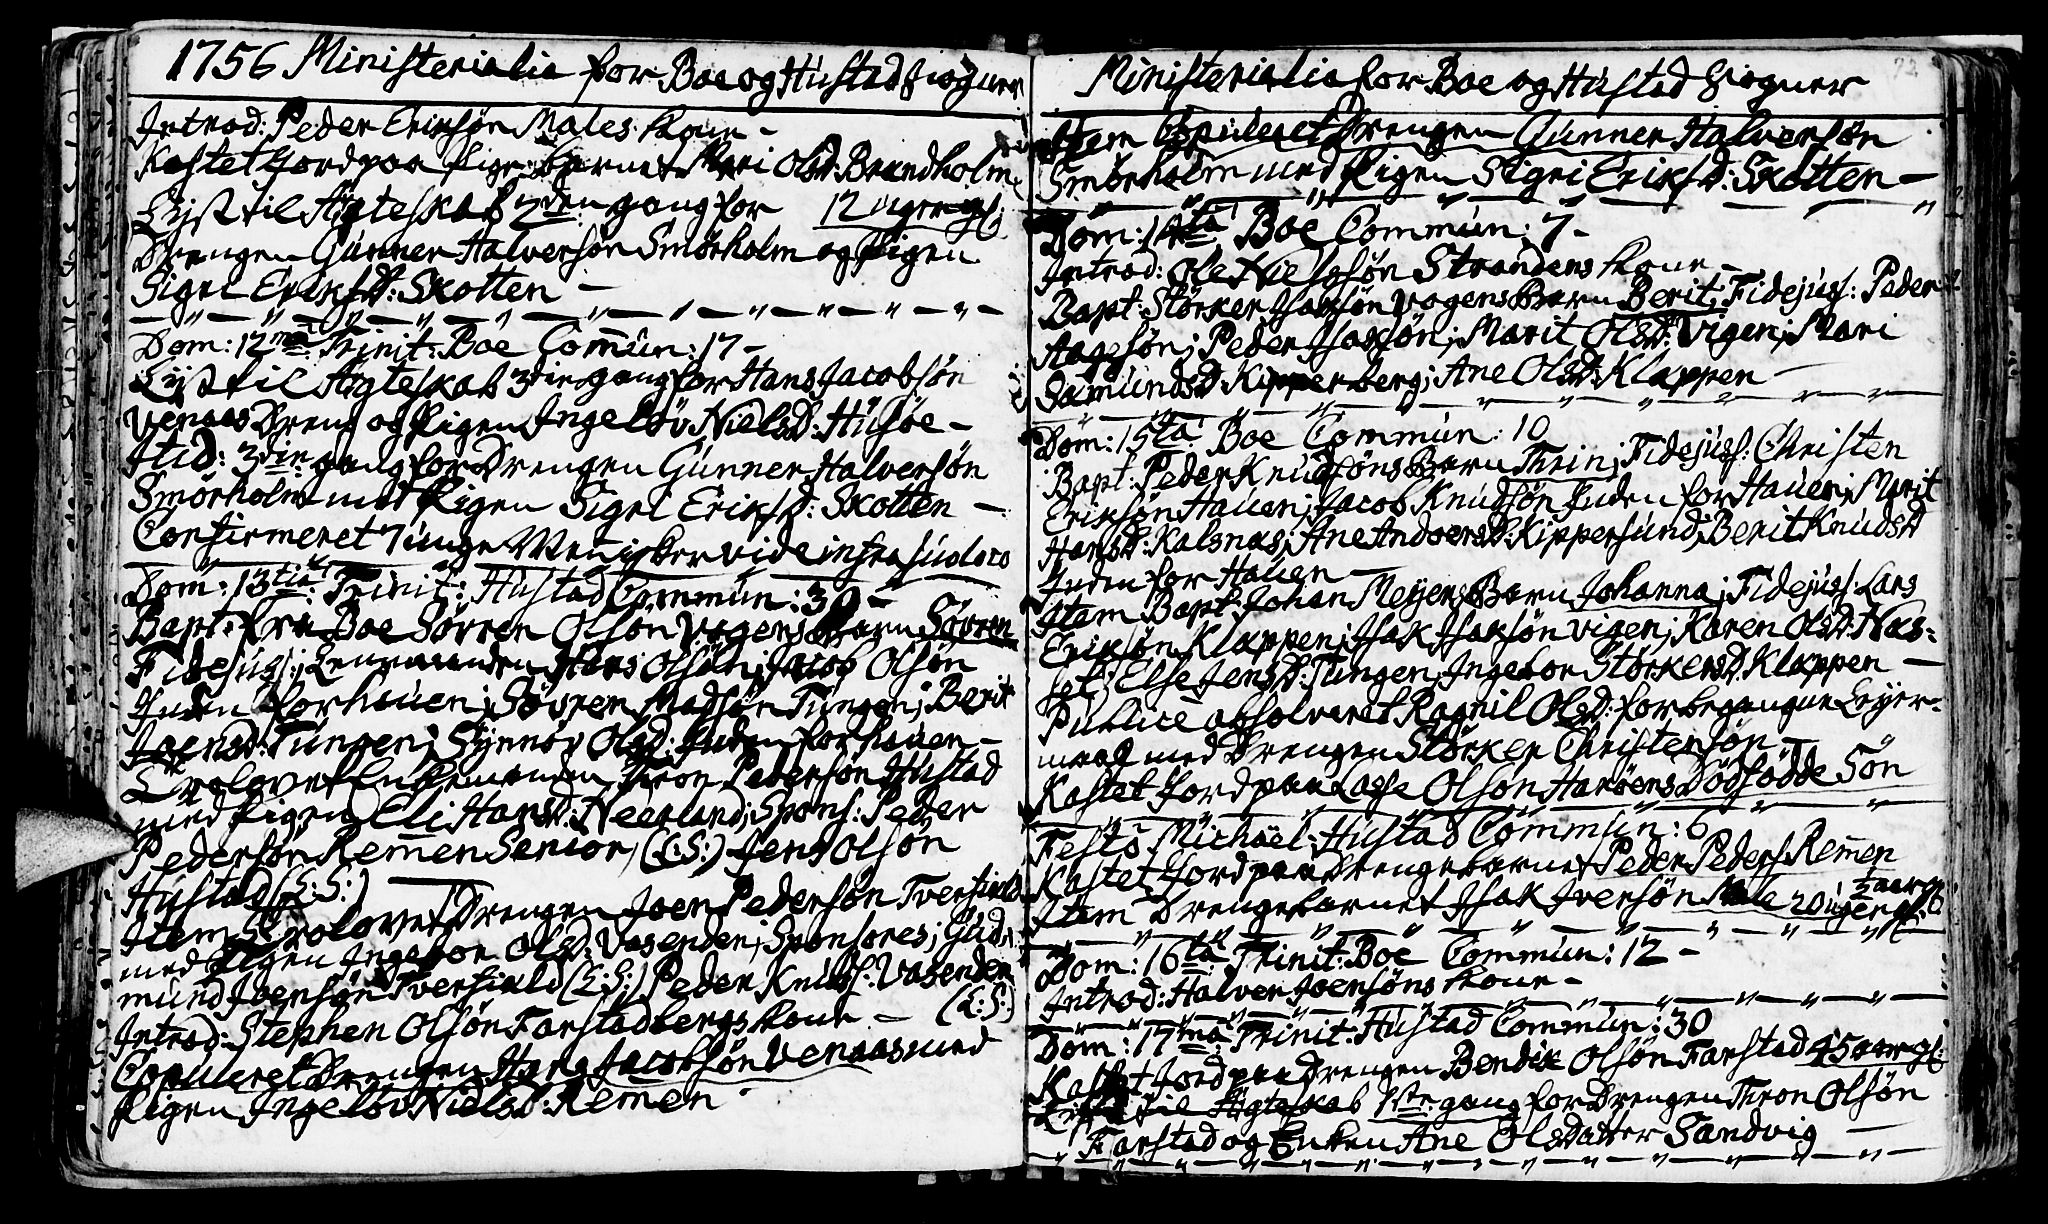 1756 Ministerialia for Boe og Hustad Sogner
Introd: Peder Eriksøn Males Kone -
Kastet Jord paa Pigebarnet Mari Olsd: Brandholm
Lyst til Ægteskab 2den gang for 12 uger gl:
Drengen Gunner Halversøn Smørholm og Pigen
Sigri Eriksd: Skotten -
Dom: 12ma Trinit: Boe Commun: 17 -
Lyst til Ægteskab 3die gang for Hans Jacobsøn
Venaas Dreng og Pigen Ingeløv Nielsd: Husøe -
Itid: 3die gang for Drengen Gunner Halversøn
Smørholm med Pigen Sigri Eriksd: Skotten -
Confirmeret 7 unge Mennisker vide infra suo loco
Dom: 13tia Trinit: Hustad Commun: 30 -
Bapt: fra Boe Søvren Olsøn Vogens Barn Søvren
Fidejuss: Lensmanden Hans Olsøn; Jacob Olsøn
Inden for hauen; Søvren Madsøn Tungen; Berit
Joensd: Tungen; Synnøv Olsd: Inden for hauen -
Trolovet Enkemanden Thron Pedersøn Hustad
med Pigen Eli Hansd: Neerland; Spons: Peder
Pedersøn Remen Senior, (L:S:) Jens Olsøn
Hustad (L:S:)
Item Trolovet Drengen Joen Pedersøn Tverfiæld
med Pigen Ingebor Olsd: Vasenden; Sponsores; Gud-
mund Joensøn Tverfiæld (L:S:) Peder Knuds: Vasenden
Introd: Stephen Olsøn Farstadbergs Kone - (L:S:)
Copuleret Drengen Hans Jacobsøn Venaas med
Pigen Ingeløv Nielsd: Remen
Ministerialia for Boe og Hustad Sogner 72
Item Copuleret Drengen Gunner Halversøn
Smørholm med Pigen Sigri Eriksd: Skotten -
Dom: 14ta Boe Commun: 7 -
Introd: Ole Nielssøn Strandens Kone -
Bapt: Størker Isaksøn Vogens Barn Berit; Fidejuss: Peder
Aagesøn; Peder Isaksøn; Marit Olsd: Vigen; Mari
Samundsd: Kipperberg; Ane Olsd: Klappen -
Dom: 15ta Boe Commun: 10
Bapt: Peder Knudsøns Barn Thrin; Fidejuss: Christen
Eriksøn Hauen; Jacob Knudsøn Inden for Hauen; Marit
Hansd: Kalsnæs; Ane Andersd: Kippersund; Berit Knudsd
Inden for Hauen -
Item Bapt: Johan Meyers Barn Johanna; Fidejuss: Lars
Eriksøn Klappen; Isak Isaksøn Vigen; Karen Olsd: Næs-
set; Else Jensd: Tungen; Ingebor Størkersd: Klappen -
Publice absolveret Ragnil Olsd: for begangne Leyer-
maal med Drengen Størker Christensøn -
Kastet Jord paa Lasse Olsøn Harøens Dødfødde Søn
Festo Michael: Hustad Commun: 6
Kastet Jord paa Drengebarnet Peder Peders: Remen
Item Drengebarnet Isak Iversøn Male 20 uger gl: ½ aar gl:
Dom: 16ta Trinit: Boe Commun: 12 -
Introd: Halver Joensøns Kone -
Dom: 17ma Trinit: Hustad Commun: 30
Kastet Jord paa Drengen Bendix Olsøn Farstad 45 aar gl:
Lyst til Ægteskab 1ste gang for Drengen Thron Olsøn
Farstad og Enken Ane Olsdatter Sandvig -